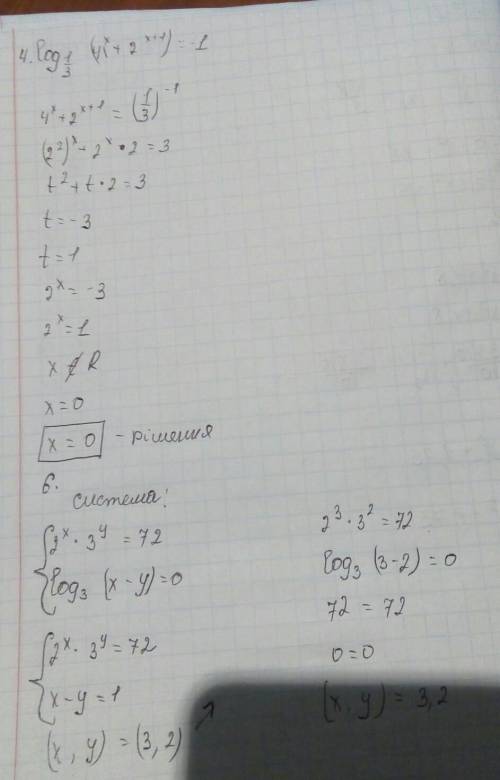 4. log_{1/3} (4^x + 2^{x+1}) = -1
4^x + 2^{x+1} = (1/3)^{-1}
(2^2)^x + 2^x • 2 = 3
t^2 + t • 2 = 3
t = -3
t = 1
2^x = -3
2^x = 1
x ∉ R
x = 0
x = 0 - рішення
6.
система:
{2^x • 3^y = 72
log_3 (x - y) = 0
{2^x • 3^y = 72
x - y = 1
(x, y) = (3, 2) ↗
2^3 • 3^2 = 72
log_3 (3-2) = 0
72 = 72
0 = 0
(x, y) = 3,2